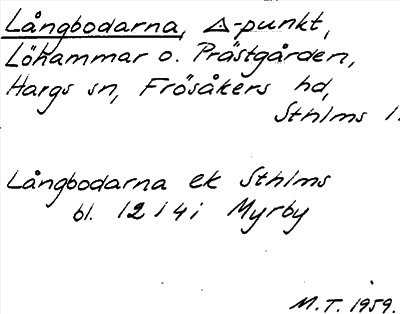 Långbodarna, △-punkt,
Löhammar o. Prästgården,
Hargs sn, Frösåkers hd,
Sthlms l.
Långbodarna ek Sthlms
bl. 1214i Myrby
M.T. 1959.